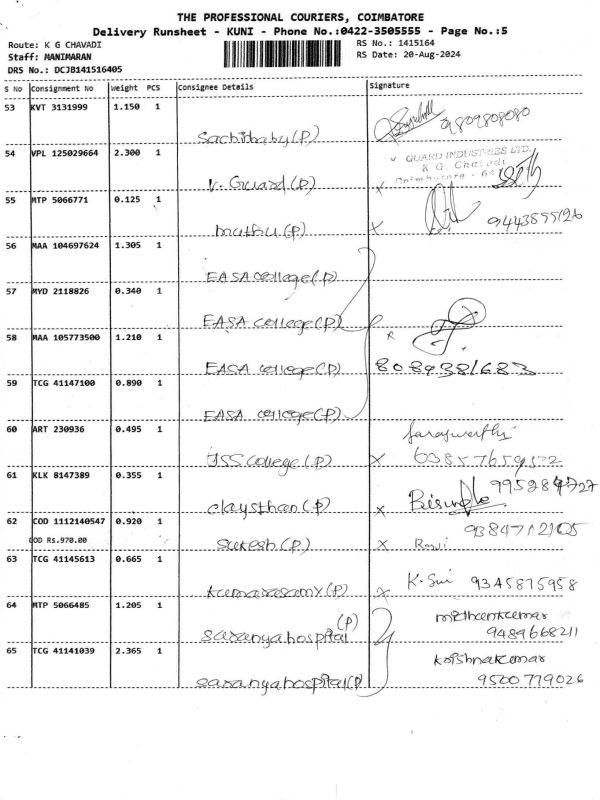 THE PROFESSIONAL COURIERS, COIMBATORE
Delivery Runsheet - KUNI - Phone No.:0422-3505555 - Page No.:5
Route: K G CHAVADI RS No.: 1415164
Staff: MANIMARAN RS Date: 20-Aug-2024
DRS No.: DCJB141516405
S No Consignment No Weight PCS Consignee Details Signature
53 KVT 3131999 1.150 1
9809808080
Sachibaby(P)
54 VPL 125029664 2.300 1
GUARD INDUSTRIES LTD.
K G Chavadi
Coimbatore - 641
V. Guard(P) x
55 MTP 5066771 0.125 1
muthu(P) x 9443855126
56 MAA 104697624 1.305 1
EASA college(P)
57 MYD 2118826 0.340 1
EASA college(P)
58 MAA 105773500 1.210 1 x
EASA college(P) 8089381683
59 TCG 41147100 0.890 1
EASA college(P)
60 ART 230936 0.495 1
JSS College(P) x
61 KLK 8147389 0.355 1
claysthan(P) x
62 COD 1112140547 0.920 1 9384712105
COD Rs.970.00 Suresh(P) x
63 TCG 41145613 0.665 1
kumarasamy(P) x 9345875958
64 MTP 5066485 1.205 1 mithunkumar
saranyahospital (P) 9489668211
65 TCG 41141039 2.365 1 krishnakumar
saranyahospital(P) 9500779026